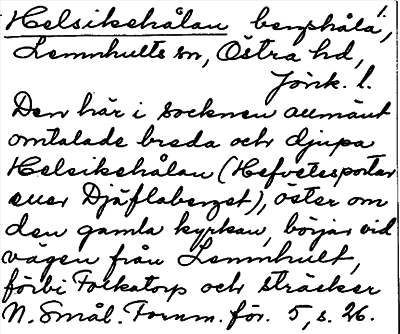 Helsikehålan bergshåla!,
Lemnhults sn, Östra hd,
Jönk. l.
Den här i socknen allmänt
omtalade breda och djupa
Helsikehålan (Hefvetesportar
eller Djäflaberget), öster om
den gamla kyrkan, börjar vid
vägen från Lemnhult,
förbi Folkatorp och sträcker
N. Smål. Fornm. för. 5, s. 26.